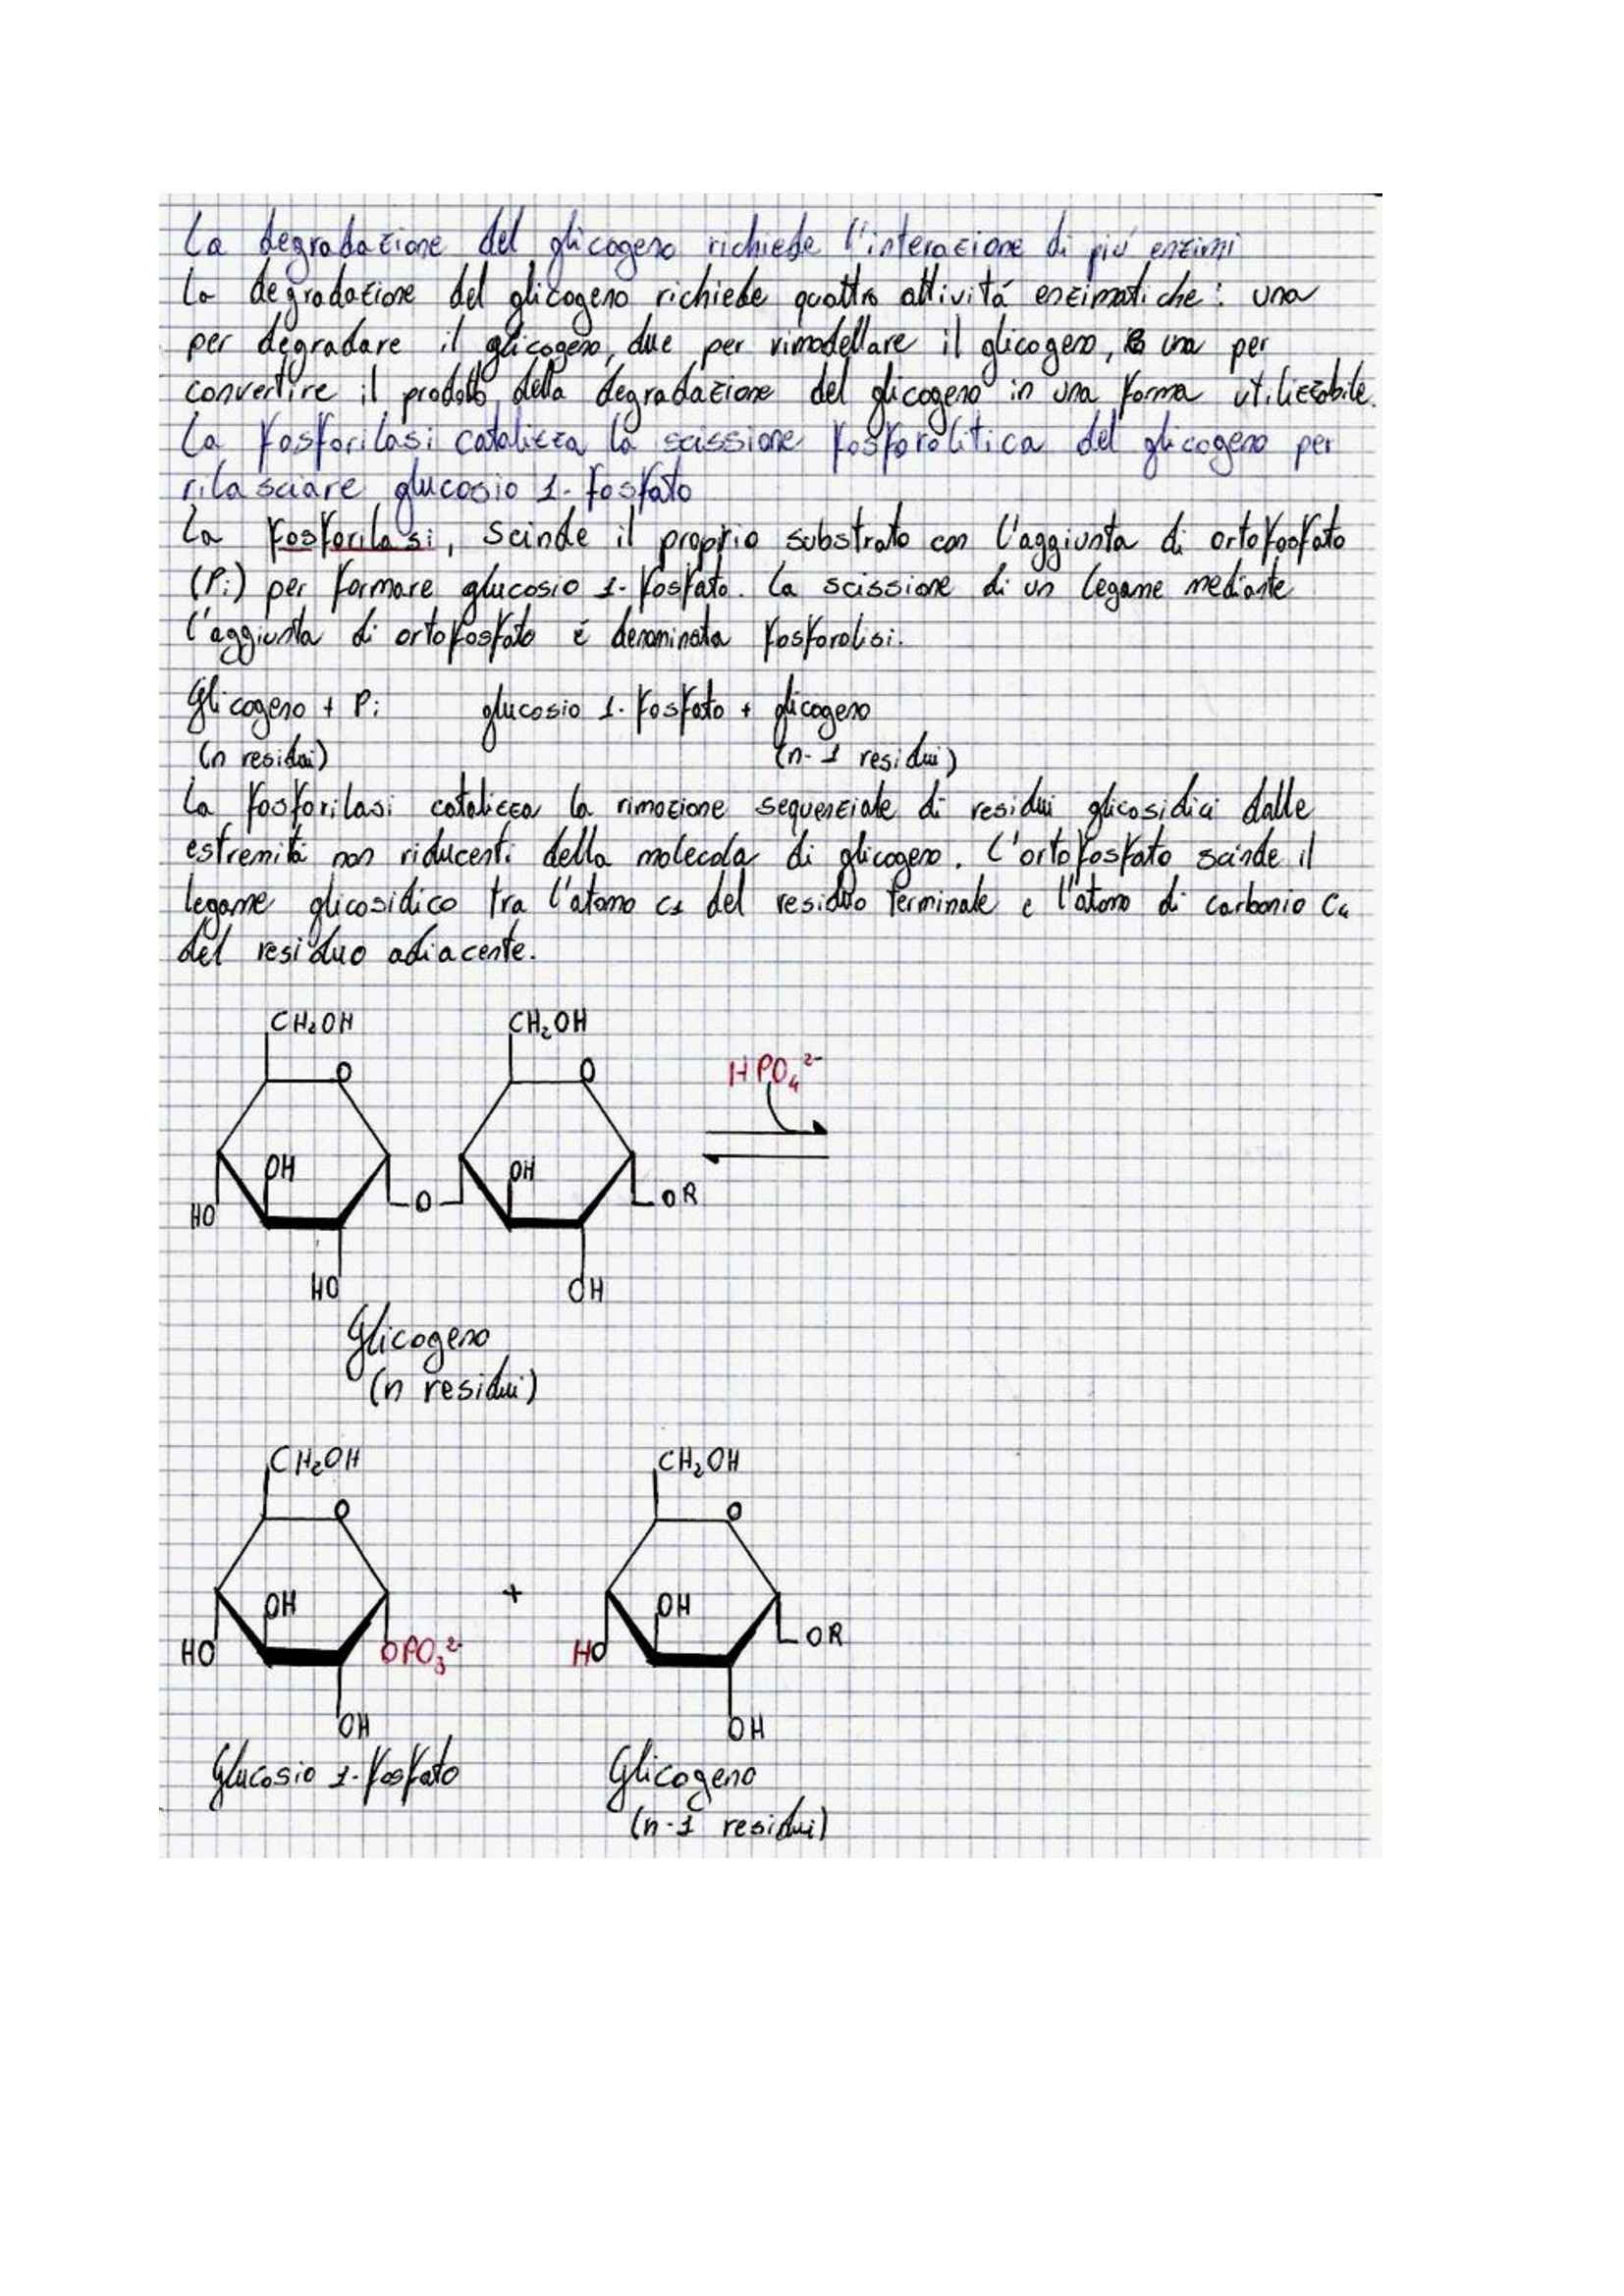 La degradazione del glicogeno richiede l'interazione di piú enzimi
La degradazione del glicogeno richiede quattro attivitá enzimatiche: una
per degradare il glicogeno, due per rimodellare il glicogeno, una per
convertire il prodotto della degradazione del glicogeno in una forma utilizzabile.
La fosforilasi catalizza la scissione fosforolitica del glicogeno per
rilasciare glucosio 1-fosfato
La fosforilasi, scinde il proprio substrato con l'aggiunta di ortofosfato
(Pi) per formare glucosio 1-fosfato. La scissione di un legame mediante
l'aggiunta di ortofosfato é denominata fosforolisi.
Glicogeno + Pi glucosio 1-fosfato + glicogeno
(n residui) (n-1 residui)
La fosforilasi catalizza la rimozione sequenziale di residui glicosidici dalle
estremitá non riducenti della molecola di glicogeno. L'ortofosfato scinde il
legame glicosidico tra l'atomo C1 del residuo terminale e l'atomo di carbonio C4
del residuo adiacente.
CH₂OH CH₂OH
O O HPO₄²⁻
OH OH
HO O OR
HO OH
Glicogeno
(n residui)
CH₂OH CH₂OH
O O
OH + OH
HO OPO₃²⁻ HO OR
OH OH
Glucosio 1-fosfato Glicogeno
(n-1 residui)